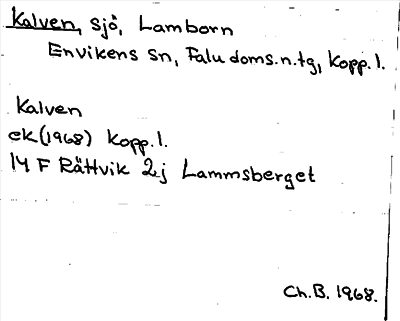 Kalven, sjö, Lamborn
Envikens sn, Falu doms.n.tg, Kopp.l.
Kalven
ek (1968) Kopp.l.
14 F Rättvik 2j Lammsberget
Ch.B. 1968.